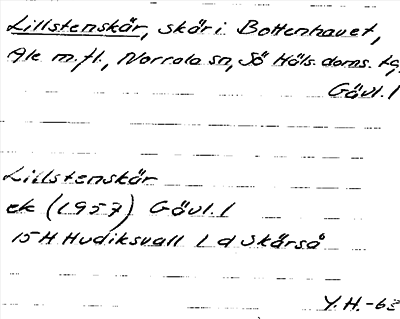 Lillstenskär, skär i Bottenhavet,
Ale m.fl., Norrala sn, Sö Häls. doms. tg,
Gävl. l
Lillstenskär
ek (1957) Gävl. l
15H Hudiksvall 1 d Skärså
Y.H.-63